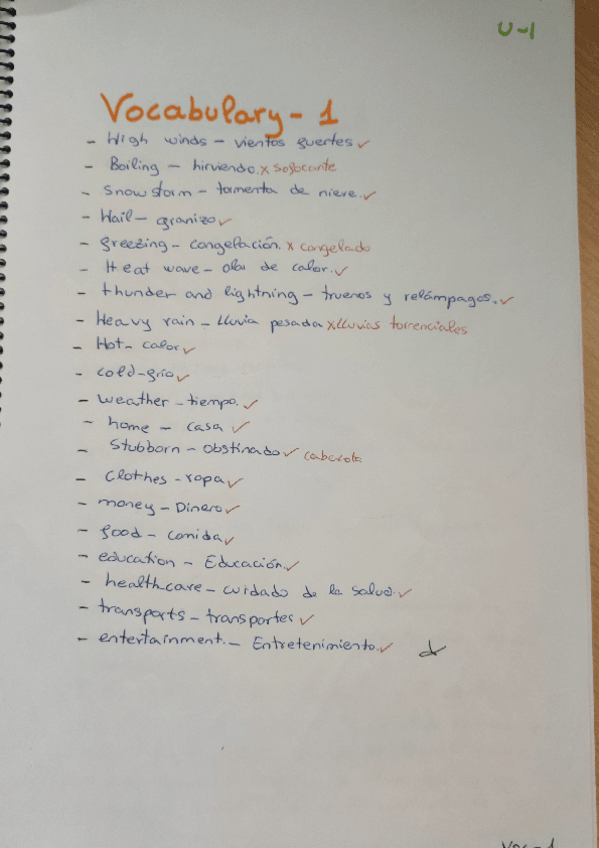 U-1
Vocabulary - 1
- High winds - vientos fuertes ✓
- Boiling - hirviendo. x sofocante
- Snowstorm - tormenta de nieve. ✓
- Hail - granizo ✓
- freezing - congelación. x congelado
- Heat wave - ola de calor. ✓
- thunder and lightning - truenos y relámpagos. ✓
- Heavy rain - Lluvia pesada x lluvias torrenciales
- Hot - calor ✓
- cold - frío ✓
- weather - tiempo. ✓
- home - casa ✓
- Stubborn - obstinado ✓ cabezota
- Clothes - ropa ✓
- money - Dinero ✓
- food - comida ✓
- education - Educación. ✓
- healthcare - cuidado de la salud. ✓
- transports - transportes ✓
- entertainment. - Entretenimiento. ✓
Voc-1